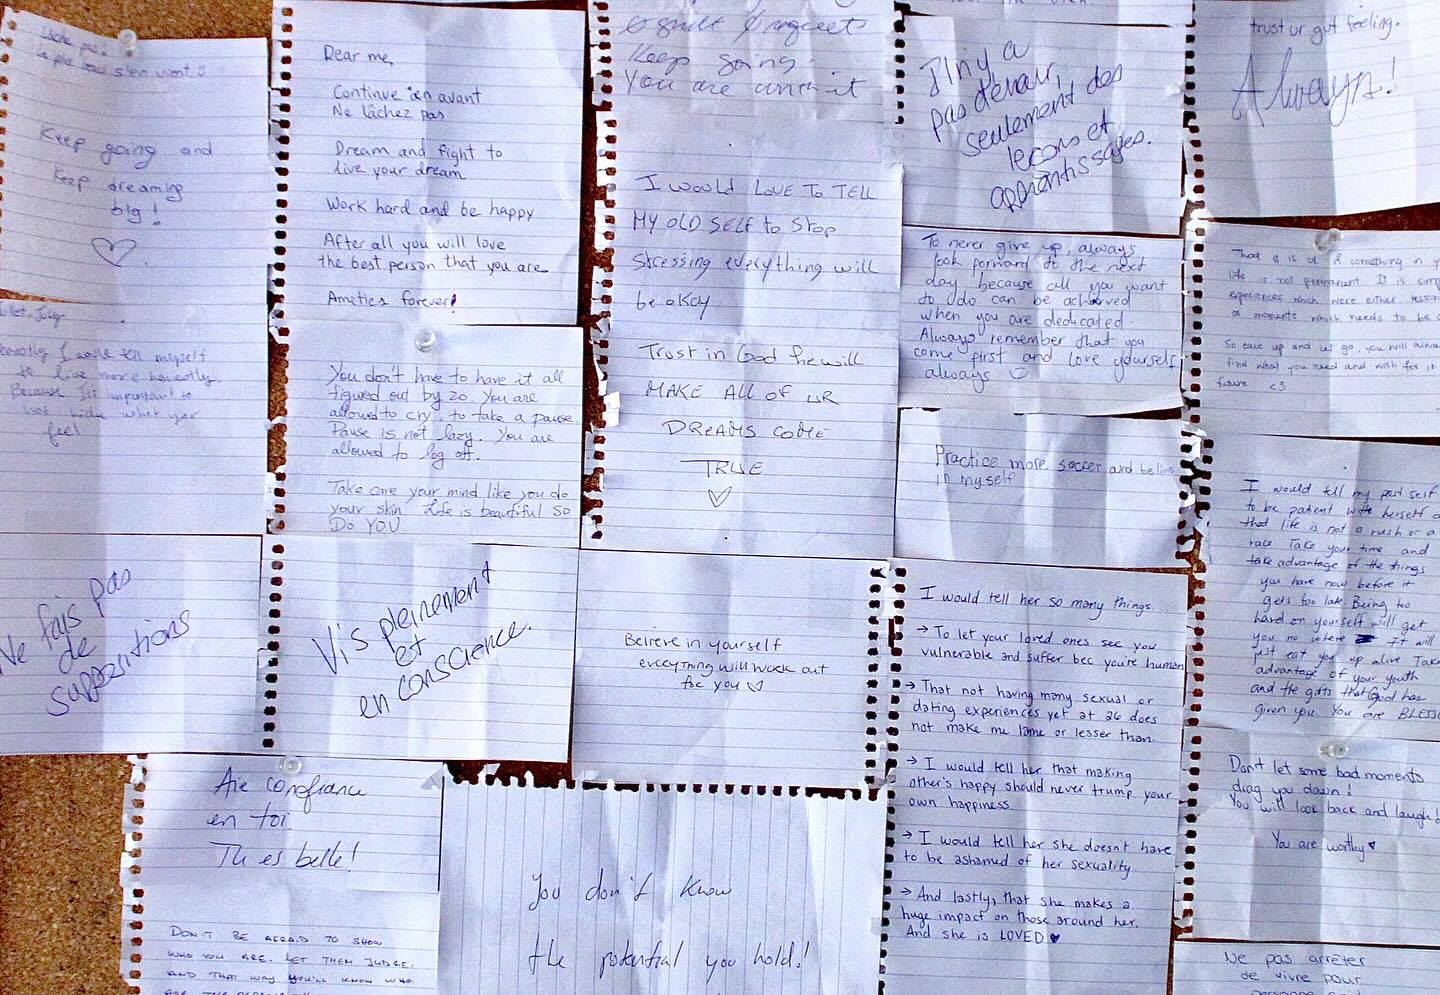 Lâche pas.
Keep going and
keep dreaming
big!
Dear me,
Continue en avant
Ne lâchez pas
Dream and fight to
live your dream
Work hard and be happy
After all you will love
the best person that you are
forever!
Keep going.
You are
I would LOVE TO TELL
MY OLD SELF to Stop
stressing everything will
be okay
Il n'y a
pas d'erreur,
seulement des
leçons et
apprentissages.
trust ur gut feeling.
Always!
I would tell myself
to live more honestly.
Because It's important to
feel
You don't have to have it all
figured out by 20. You are
allowed to cry, to take a pause
Pause is not lazy. You are
allowed to log off.
Take care your mind like you do
your skin. Life is beautiful SO
Do YOU
Trust in God he will
MAKE ALL OF UR
DREAMS COME
TRUE
To never give up, always
look forward to the next
day because all you want
to do can be achieved
when you are dedicated.
Always remember that you
come first and love yourself
always
Practice more soccer and belive
in myself
something in
life is not permanent. It is
experiences which were either
moments which needs to be
So ease up and let go, you will
find what you need and wish for
future <3
I would tell my past self
to be patient with herself
that life is not a rush or a
race Take your time and
take advantage of the things
you have now before it
gets too late. Being too
hard on yourself will get
you no where It will
just eat you up alive Take
advantage of your youth
and the gifts that God has
given you. You are BLESS
Ne fais pas
de
suppositions
Vis pleinement
et
en conscience.
Believe in yourself
everything will work out
for you
I would tell her so many things...
→ To let your loved ones see you
vulnerable and suffer bec you're human
→ That not having many sexual or
dating experiences yet at 26 does
not make me lame or lesser than.
→ I would tell her that making
other's happy should never trump your
own happiness.
→ I would tell her she doesn't have
to be ashamed of her sexuality
→ And lastly, that she makes a
huge impact on those around her.
And she is LOVED ♥
Don't let some bad moments
drag you down!
You will look back and laugh!
You are worthy ♥
Aie confiance
en toi.
Tu es belle!
DON'T BE AFRAID TO SHOW
WHO YOU ARE. LET THEM JUDGE,
AND THAT WAY YOU'LL KNOW WHO
You don't know
the potential you hold!
Ne pas arrêter
de vivre pour